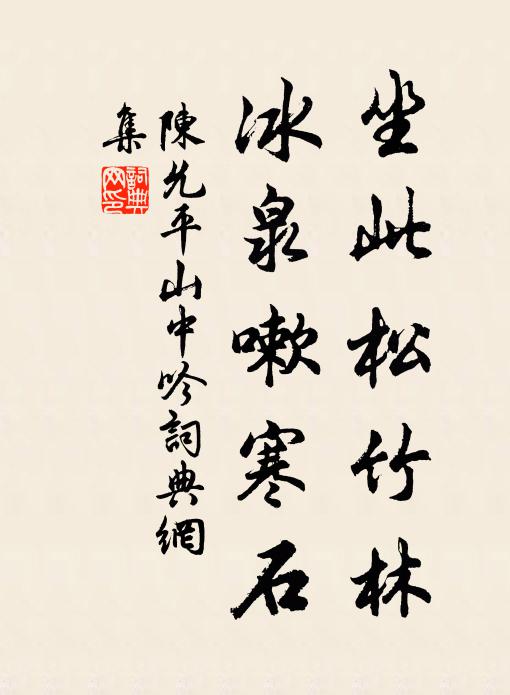 坐此松竹林
冰泉嗽寒石
陳允平山中吟詞典網
集
詞典
网印